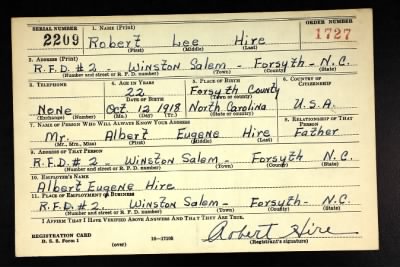 SERIAL NUMBER 1. NAME (Print) ORDER NUMBER
2209 Robert Lee Hire 1727
(First) (Middle) (Last)
2. ADDRESS (Print)
R.F.D. #2 - Winston Salem - Forsyth - N.C.
(Number and street or R. F. D. number) (Town) (County) (State)
3. TELEPHONE 4. AGE IN YEARS 5. PLACE OF BIRTH 6. COUNTRY OF CITIZENSHIP
22 Forsyth County
DATE OF BIRTH (Town or county)
None Oct. 12 1918 North Carolina U.S.A.
(Exchange) (Number) (Mo.) (Day) (Yr.) (State or country)
7. NAME OF PERSON WHO WILL ALWAYS KNOW YOUR ADDRESS 8. RELATIONSHIP OF THAT PERSON
Mr. Albert Eugene Hire Father
(Mr., Mrs., Miss) (First) (Middle) (Last)
9. ADDRESS OF THAT PERSON
R.F.D. #2 - Winston Salem - Forsyth N.C.
(Number and street or R. F. D. number) (Town) (County) (State)
10. EMPLOYER'S NAME
Albert Eugene Hire
11. PLACE OF EMPLOYMENT OR BUSINESS
R.F.D. #2 - Winston Salem - Forsyth - N.C.
(Number and street or R. F. D. number) (Town) (County) (State)
I AFFIRM THAT I HAVE VERIFIED ABOVE ANSWERS AND THAT THEY ARE TRUE.
REGISTRATION CARD Robert Hire
D. S. S. Form 1 (over) 16-17105 (Registrant's signature)